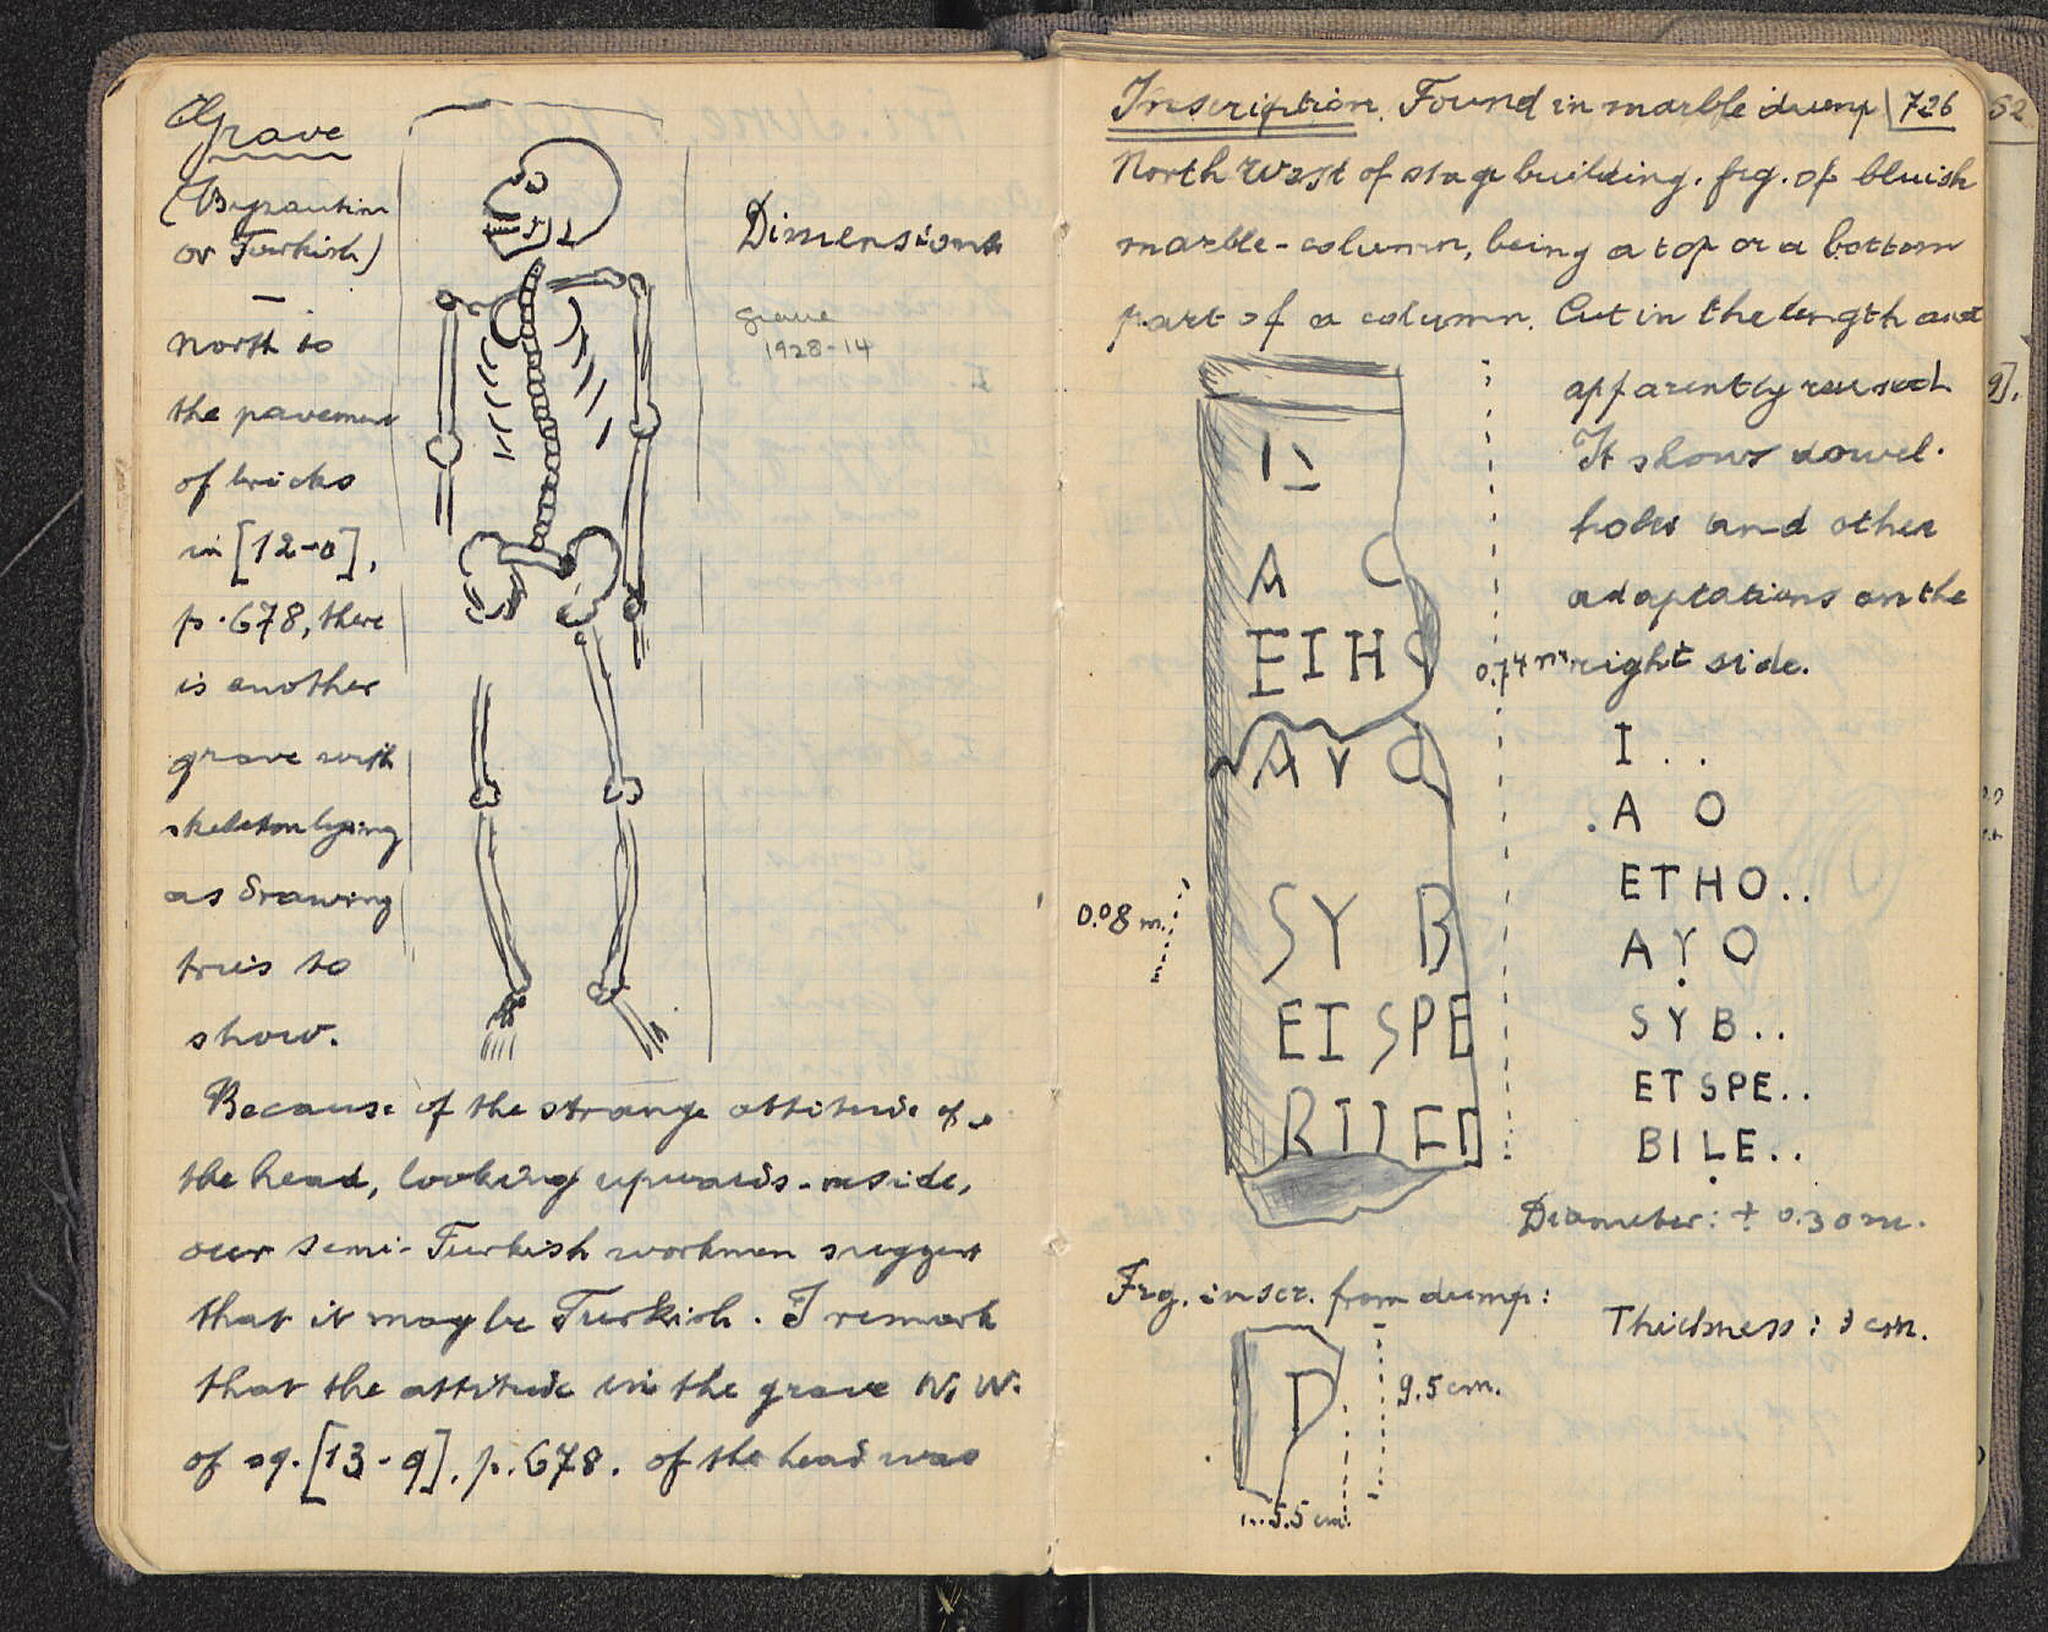 Grave
(Byzantine
or Turkish)
—
North to
the pavement
of bricks
in [12-o],
p. 678, there
is another
grave with
skeleton lying
as drawing
tries to
show.
Dimensions
grave
1928-14
Because of the strange attitude of
the head, looking upwards-inside,
our semi-Turkish workmen suggest
that it may be Turkish. I remark
that the attitude in the grave N. W.
of sq. [13-9], p. 678. of the head was
Inscription. Found in marble dump 726
North West of stage building. frg. of bluish
marble-column, being a top or a bottom
part of a column. Cut in the length and
apparently reused
It shows dowel-
holes and other
adaptations on the
right side.
A C
EIHO
AYO
SY B
EISPE
0.08 m.
0.74 m
I . .
. A O
ETHO..
AYO
SYB..
ETSPE..
BILE..
Diameter: ± 0.30 m.
Frg. inscr. from dump:
Thickness: 3 cm.
9.5 cm.
5.5 cm.
52
9].